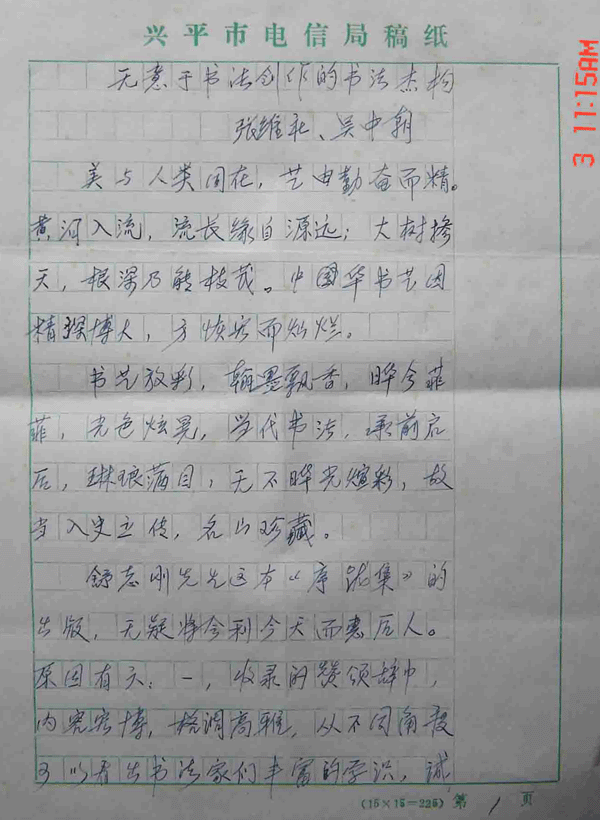 兴平市电信局稿纸
3 11:15AM
无意于书法创作的书法杰构
张维社、吴中朝
美与人类同在，艺由勤奋而精。
黄河入流，流长缘自源远；大树撑
天，根深乃能枝茂。中国华书艺因
精琛博大，方恢宏而灿烂。
书艺放彩，翰墨飘香，晔今菲
菲，光色炫晃，当代书法，承前启
后，琳琅满目，无不晔光煊彩，故
当入史立传，名山珍藏。
舒志刚先生这本《序跋集》的
出版，无疑将令利今天而惠后人。
原因有六：一，收录的赞颂辞中，
内容宏博，格调高雅，从不同角度
可以看出书法家们丰富的学识，诚
(15×15=225) 第 1 页